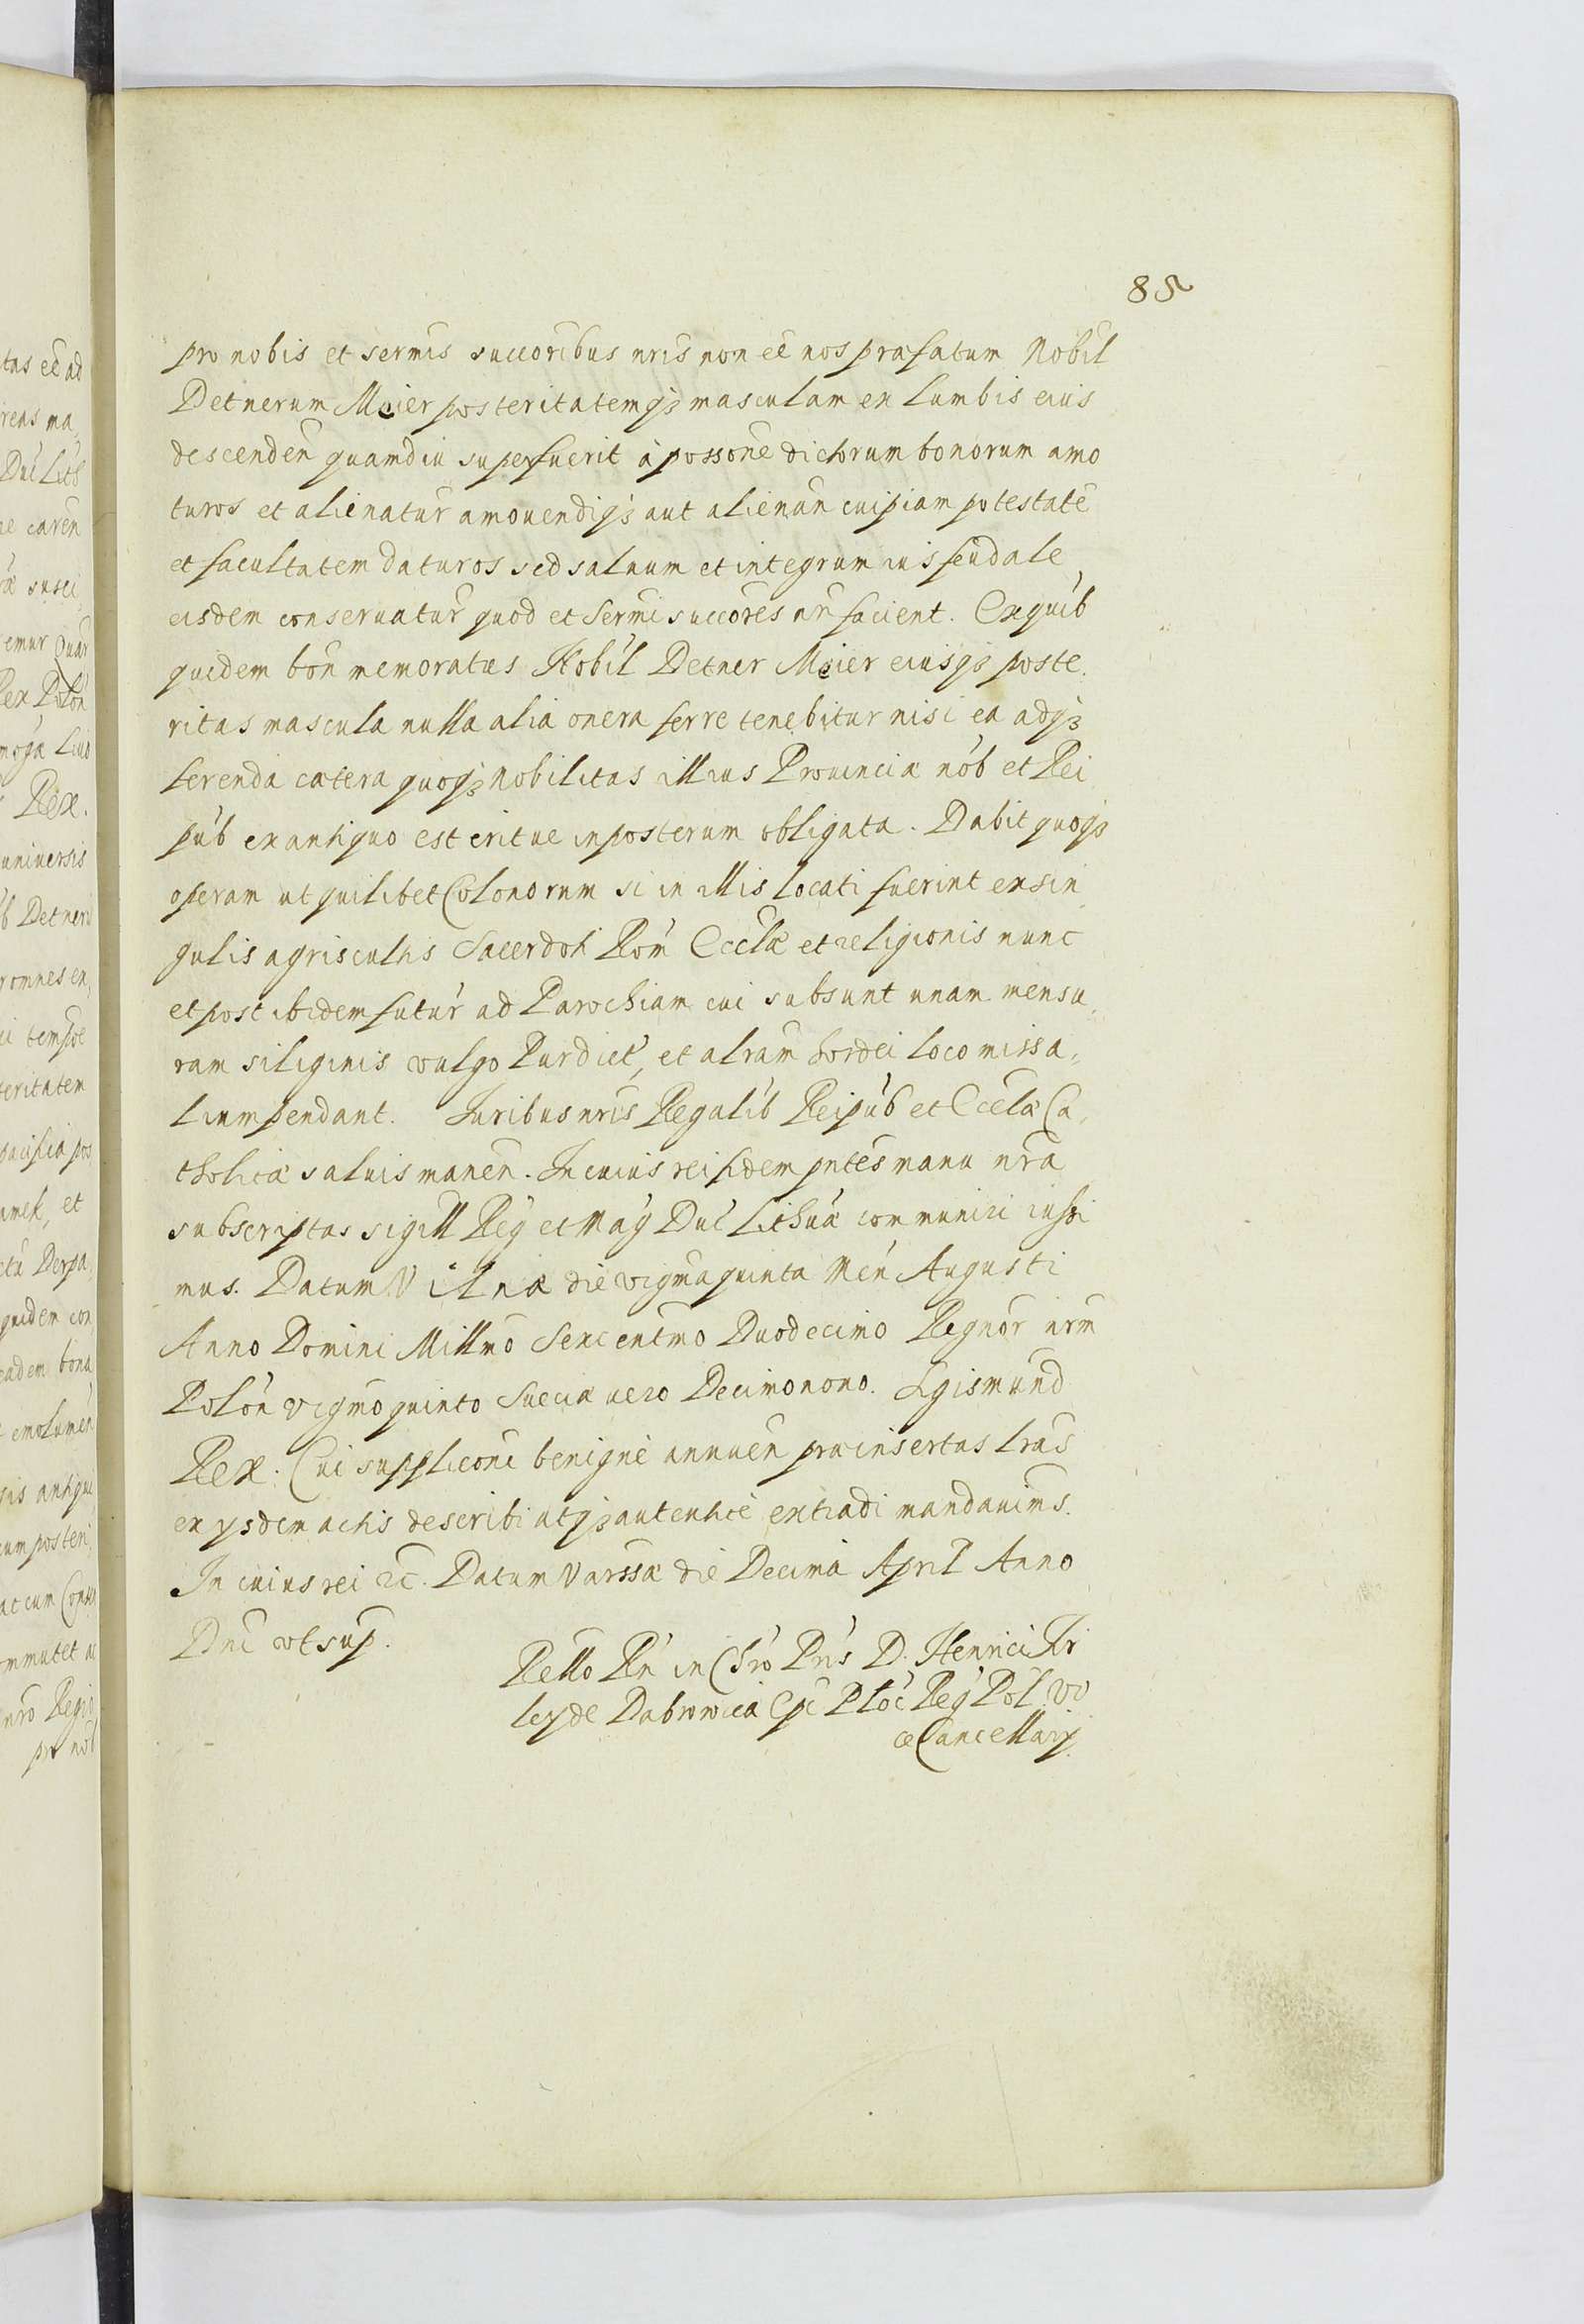 85
pro nobis et sermis succoribus nris non eē nos præfatum Nobil
Detnerum Meier posteritatemq₃ masculam ex Lumbis eius
descenden quamdiu superfuerit à possone dictorum bonorum amo
turos et alienatur amouendiq₃ aut alienan cuipiam potestatē
et facultatem daturos sed saluum et integrum ius feudale
eisdem conseruatur quod et Sermi succores nri facient. Ex quib
quidem bon memoratus Nobil Detner Meier eiusq₃ poste,
ritas mascula nulla alia onera ferre tenebitur nisi ea ad q₃
ferenda cætera quoq₃ Nobilitas illius Prouinciæ nob et Rei
pub ex antiquo est eritue in posterum obligata. Dabit quoq₃
operam ut quilibet Colonorum si in illis locati fuerint ex sin,
gulis agris cultis Sacerdoti Rom Eccla et religionis nunc
et post ibidem futur ad Parochiam cui subsunt unam mensu,
ram siliginis vulgo Purdiet, et alram hordei loco missa,
lium pendant. Iuribus nris Regalib Reipub et Eccla Ca,
tholica saluis manen. In cuius rei fidem pntes manu nra
subscriptas sigill Reg et Mag Duc Lithuæ communiri iussi
mus. Datum Vilnæ die vigmaquinta Men Augusti
Anno Domini Millmo Sexcentmo Duodecimo Regnor nrm
Polon vigmo quinto Sueciæ uero Decimonono. Sgismund
Rex. Cui suppliconi benignè annuen præinsertas lras
ex ysdem actis describi atq₃ autenticè extradi mandauims.
In cuius rei &c. Datum Varssæ die Decima April Anno
Dni vt sup.
Rello Rn in Chro Pris D. Henrici Fir
ley de Dabrowica Epi Ploc Reg Pol Vi
ce Cancellarij.